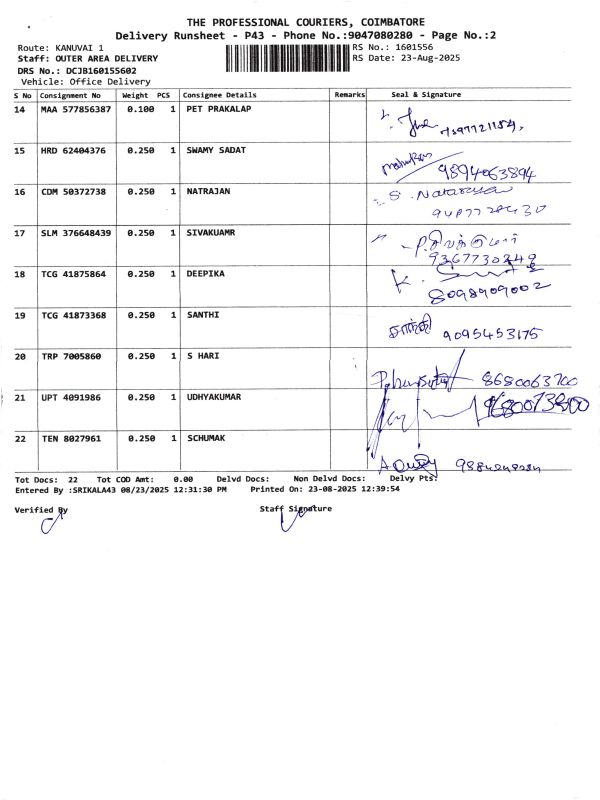 THE PROFESSIONAL COURIERS, COIMBATORE
Delivery Runsheet - P43 - Phone No.:9047080280 - Page No.:2
Route: KANUVAI 1 RS No.: 1601556
Staff: OUTER AREA DELIVERY RS Date: 23-Aug-2025
DRS No.: DCJB160155602
Vehicle: Office Delivery
S No Consignment No Weight PCS Consignee Details Remarks Seal & Signature
14 MAA 577856387 0.100 1 PET PRAKALAP
15 HRD 62404376 0.250 1 SWAMY SADAT
9894063894
16 CDM 50372738 0.250 1 NATRAJAN S. Natarajan
17 SLM 376648439 0.250 1 SIVAKUAMR
9367730248
18 TCG 41875864 0.250 1 DEEPIKA
8098909002
19 TCG 41873368 0.250 1 SANTHI
சாந்தி 9095453175
20 TRP 7005860 0.250 1 S HARI
8680063700
21 UPT 4091986 0.250 1 UDHYAKUMAR
22 TEN 8027961 0.250 1 SCHUMAK
Tot Docs: 22 Tot COD Amt: 0.00 Delvd Docs: Non Delvd Docs: Delvy Pts:
Entered By :SRIKALA43 08/23/2025 12:31:30 PM Printed On: 23-08-2025 12:39:54
Verified By Staff Signature